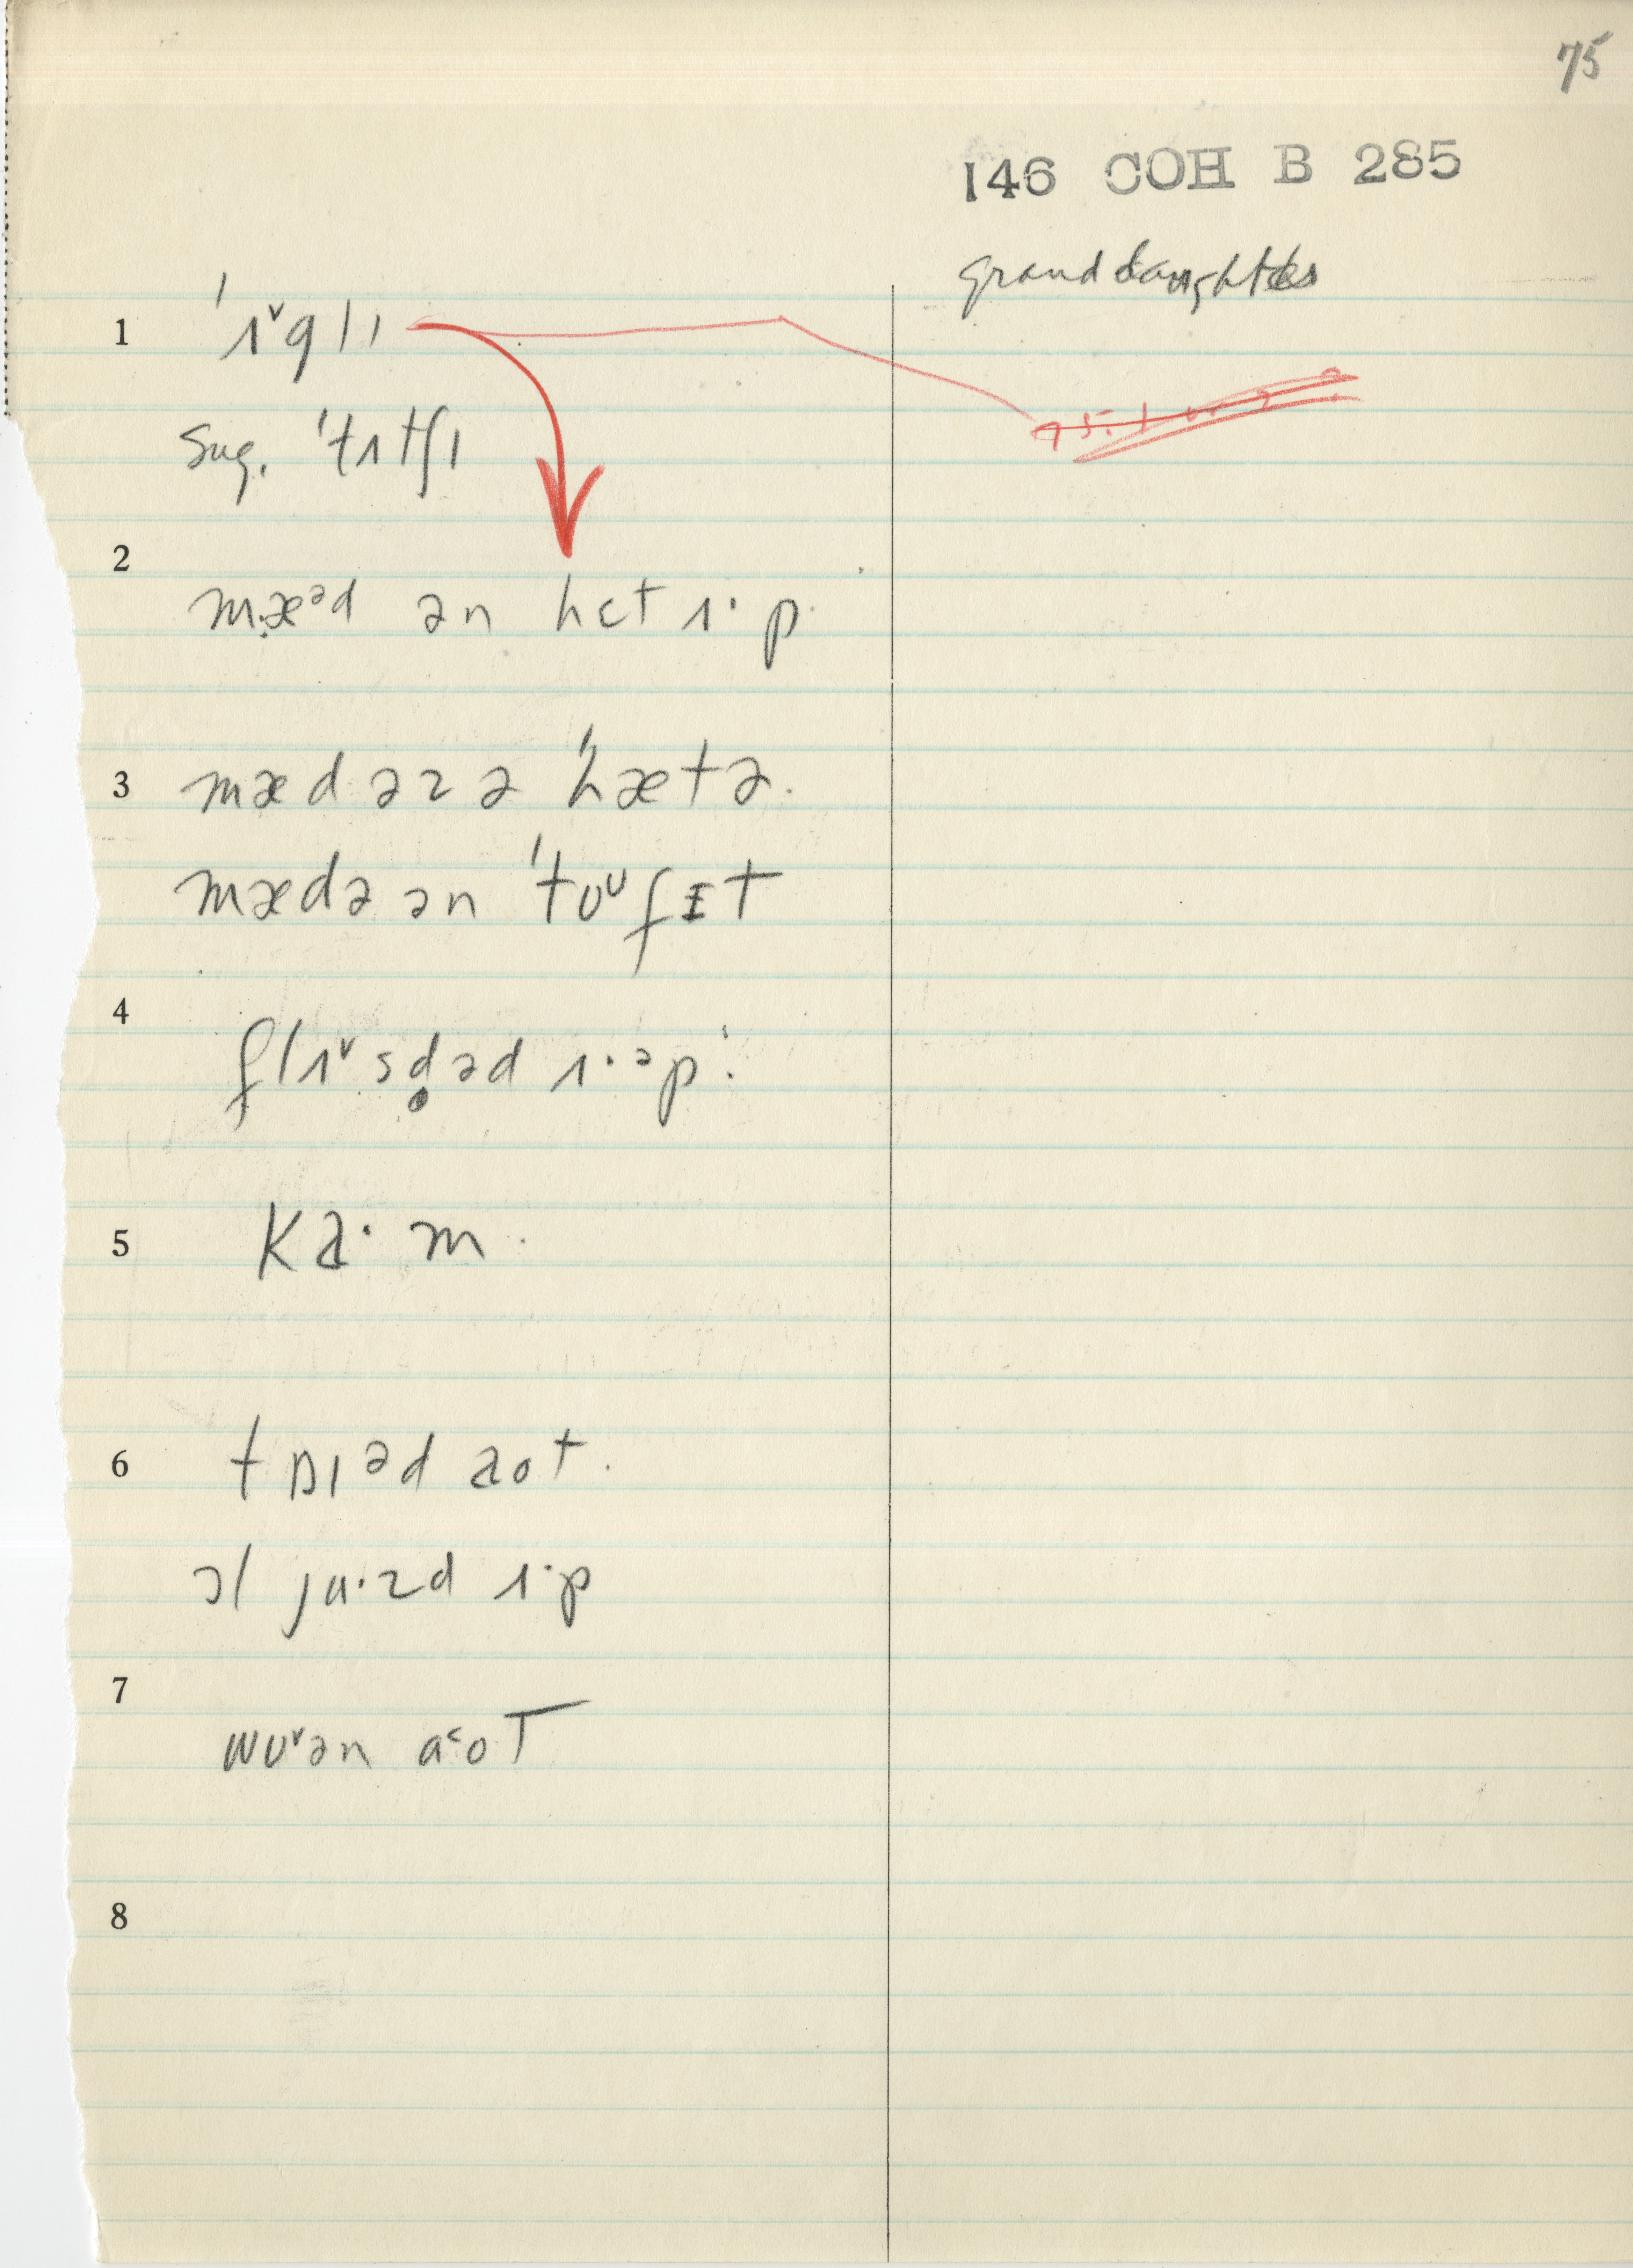 75
146 COH B 285
granddaughter
1 ˈɪˇglɪ
sug. ˈtɪtʃɪ
2
mæᵊd ən hɛt ɪ·p.
3 mæd əz ə ˈhætə.
mædə ən ˈtʊᶸfɪt
4
flɪˇsd̥əd ɪ·ᵊp.
5 ka·m.
6 tɒɪəd aot.
ɔl ju·zd ɪ·p
7
wʊˇən a˂oT
8